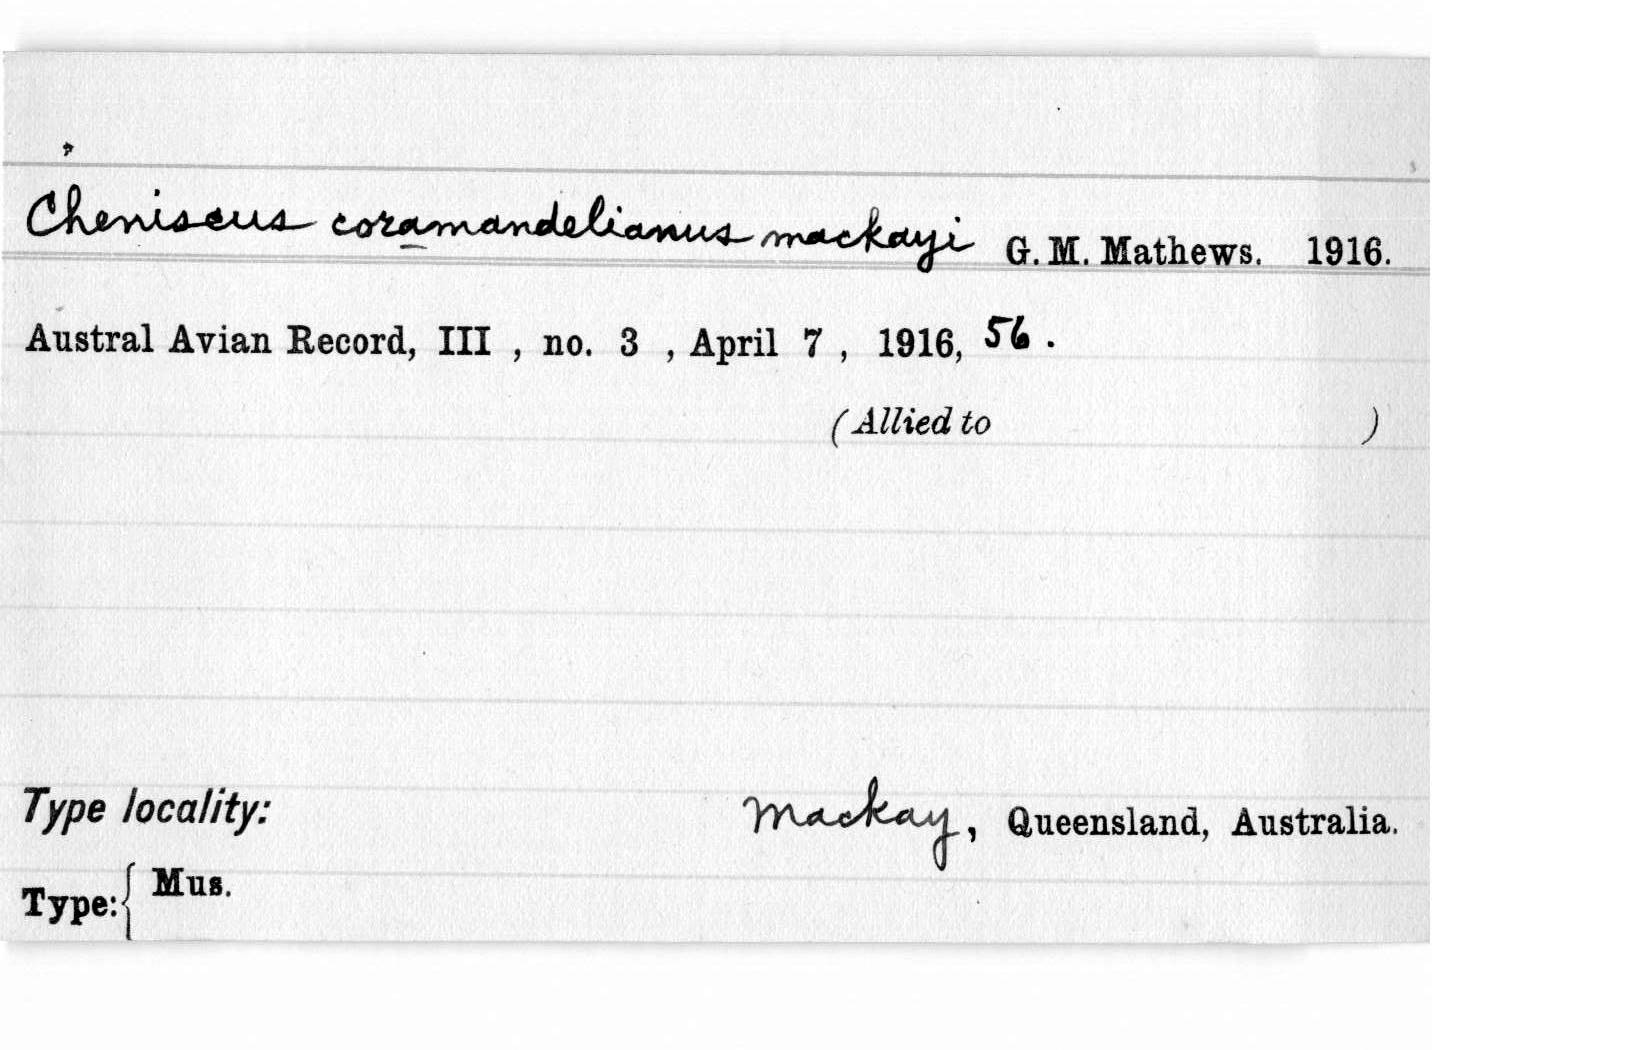 Cheniscus coramandelianus mackayi G. M. Mathews. 1916.
Austral Avian Record, III , no. 3 , April 7 , 1916, 56 .
(Allied to )
Type locality: Mackay, Queensland, Australia.
Type: { Mus.